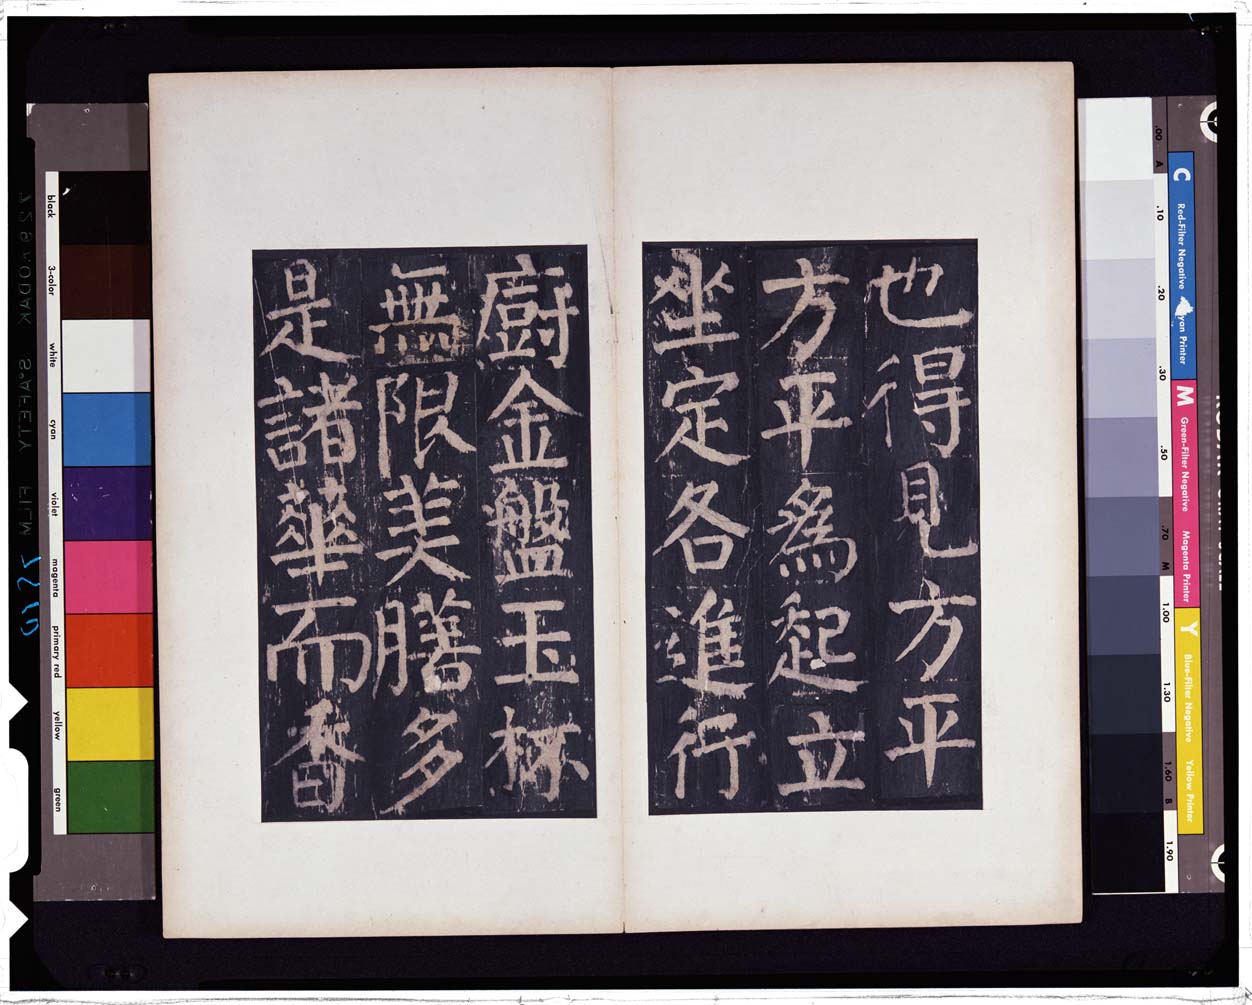 也得見方平
方平為起立
坐定各進行
廚金盤玉杯
無限美膳多
是諸華而香
black
3-color
white
cyan
violet
magenta
primary red
yellow
green
.00 A
.10
.20
.30
.50
.70 M
1.00
1.30
1.60 B
1.90
C Red-Filter Negative Cyan Printer
M Green-Filter Negative Magenta Printer
Y Blue-Filter Negative Yellow Printer